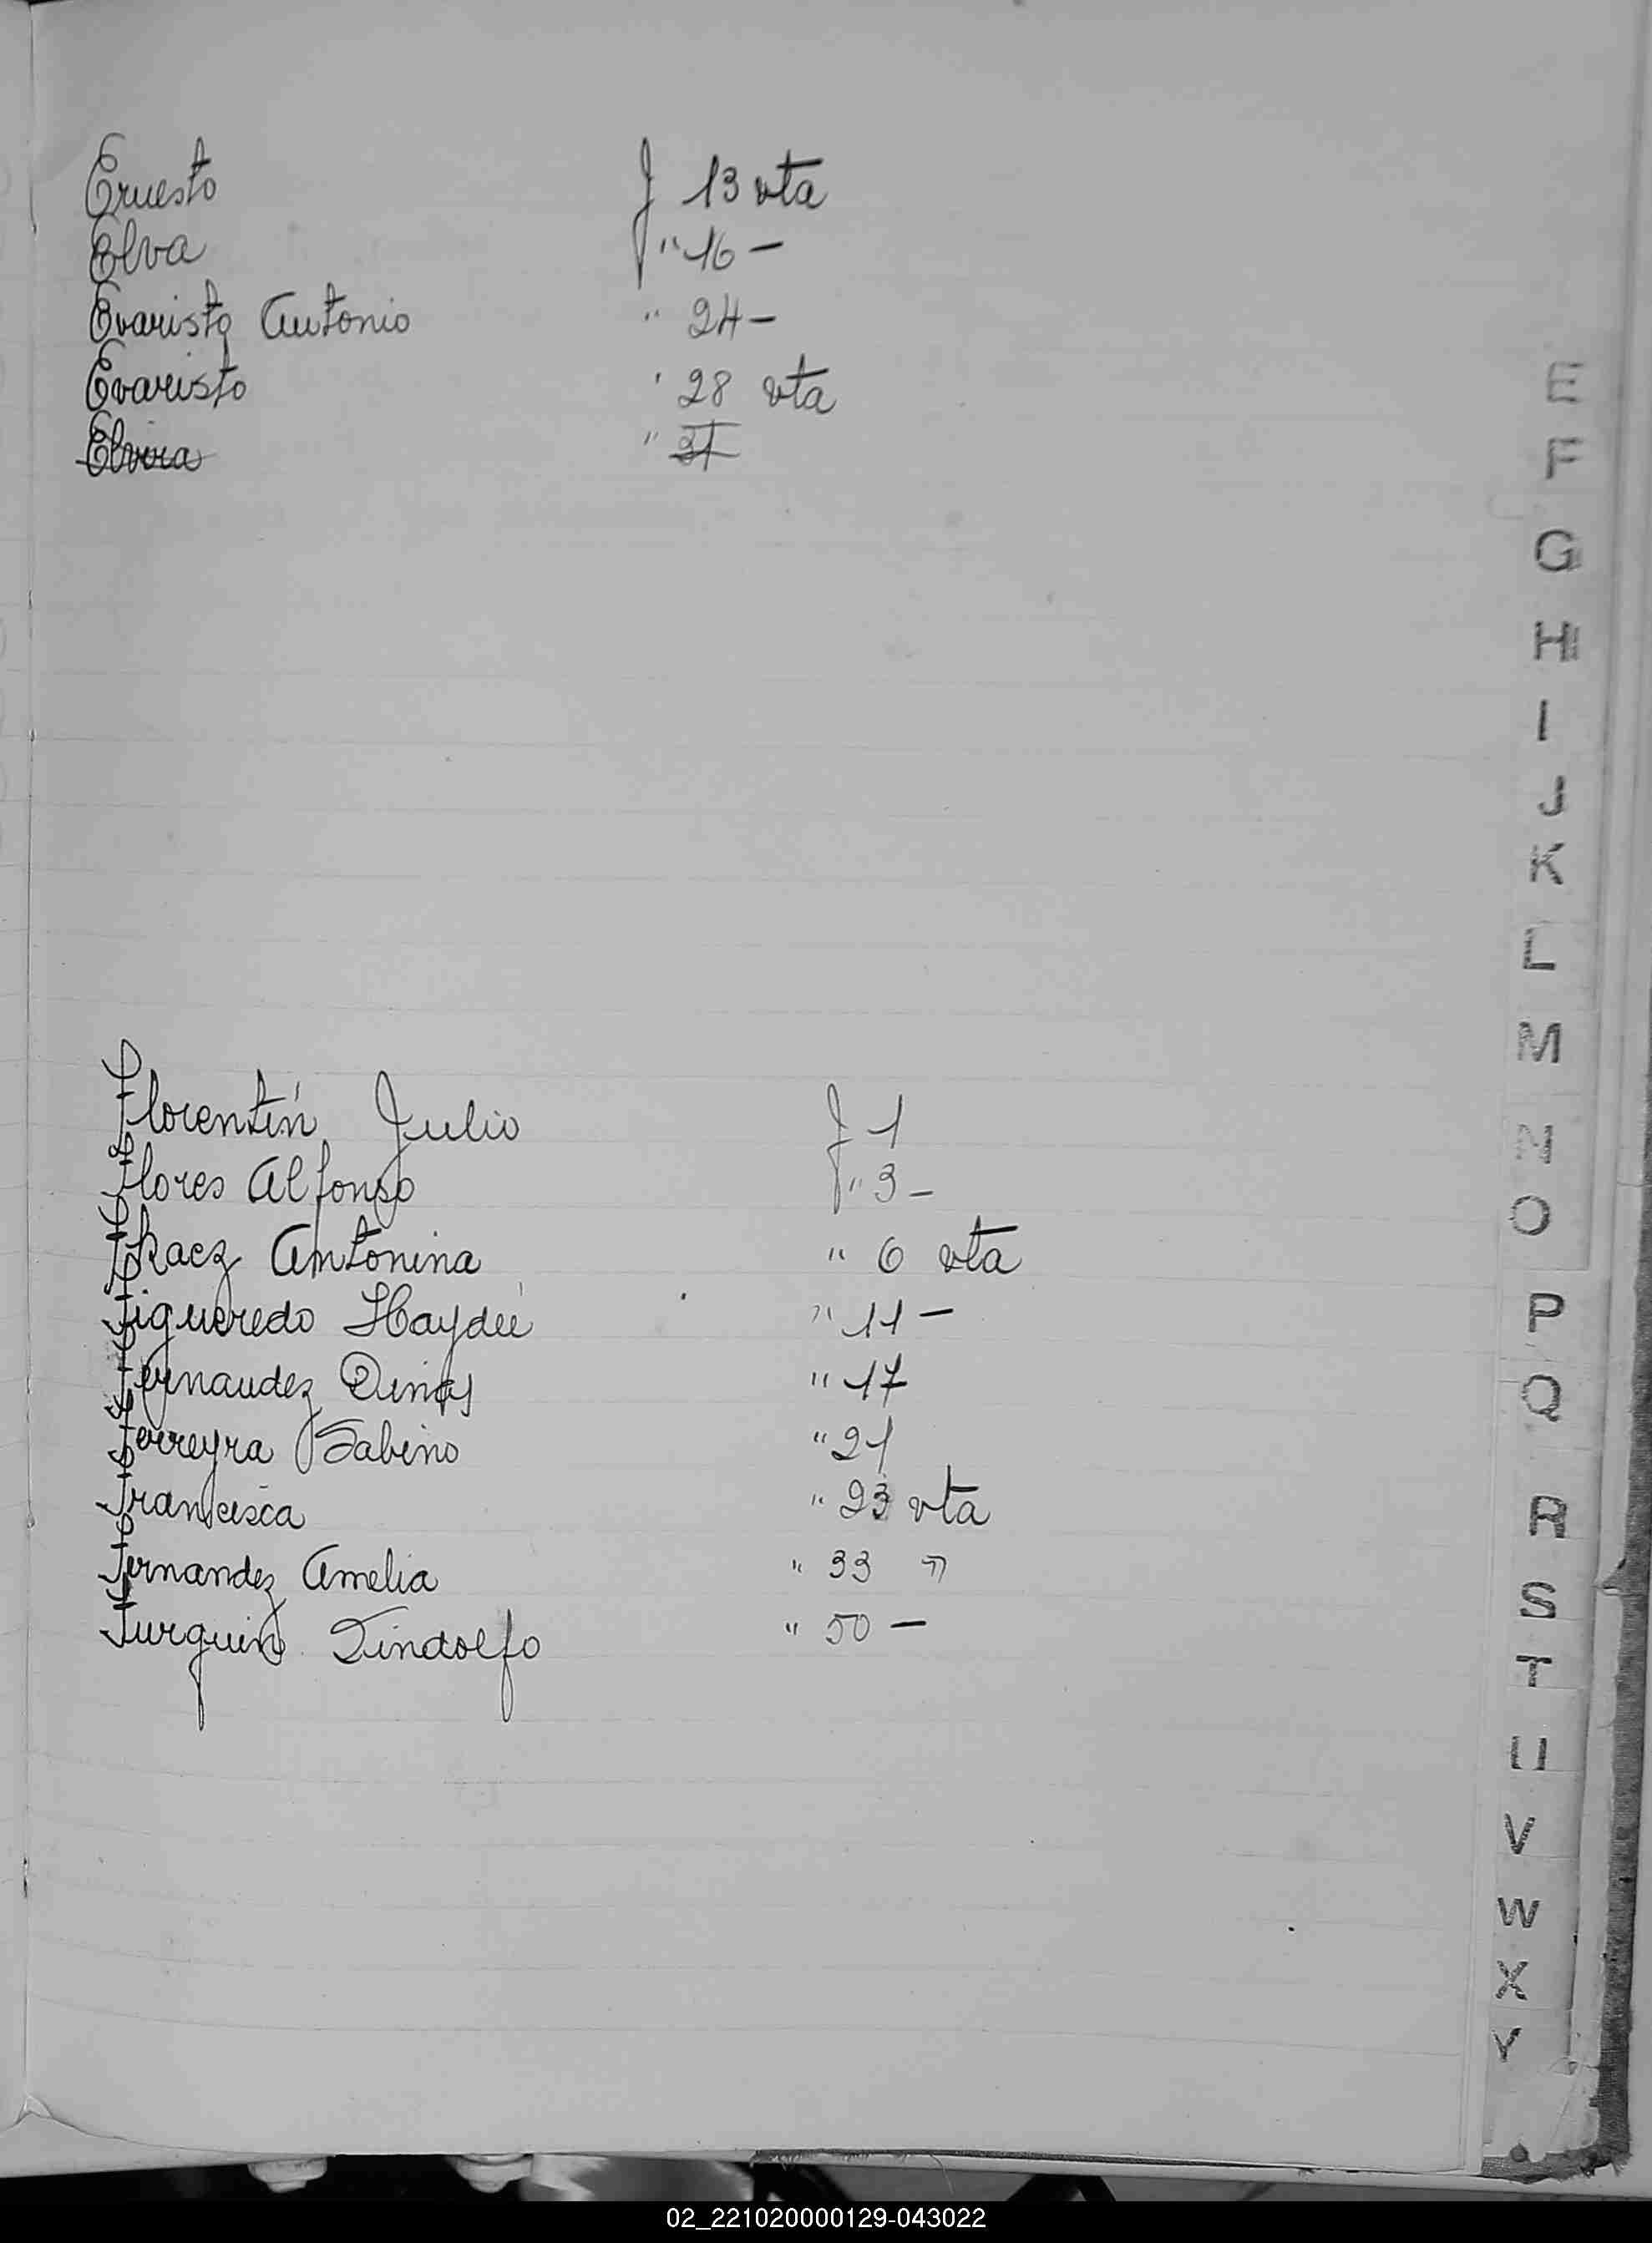 Ernesto f 13 vta
Elva " 16 -
Evaristo Antonio " 24 -
Evaristo " 28 vta
Elvira " 31
Florentín Julio f 1
Flores Alfonso " 3 -
Fkacz Antonina " 6 vta
Figueredo Haydeé " 11 -
Fernandez Dinas " 17
Ferreyra Sabino " 21
Francisca " 23 vta
Fernandez Amelia " 33 "
Furquin Lindolfo " 50 -
E
F
G
H
I
J
K
L
M
N
O
P
Q
R
S
T
U
V
W
X
Y
02_221020000129-043022